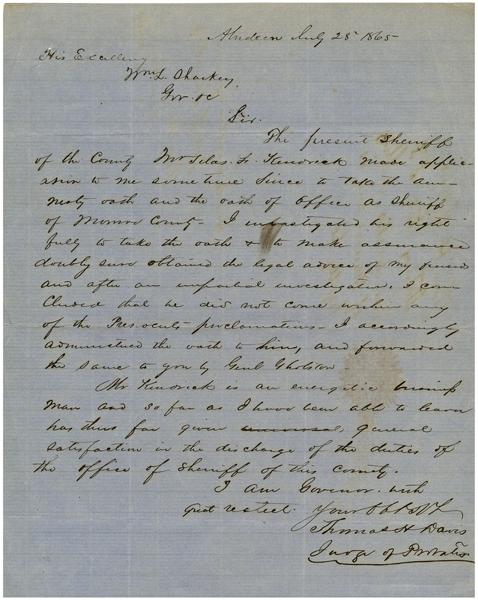 Aberdeen July 25 1865
His Excellency
Wm. L. Sharkey
Gov. &c
Sir.
The present Sheriff
of the County Mr Silas. F. Kendrick made applic-
ation to me sometime since to take the am-
nesty oath and the oath of Office as Sheriff
of Monroe County - I investigated his right
fully to take the oath & to make assurance
doubly sure obtained the legal advice of my friend
and after an impartial investigation, I con
cluded that he did not come within any
of the Presidents proclamations. I accordingly
administered the oath to him, and forwarded
the same to you by Genl Gholston
Mr Kendrick is an energetic business
man and so far as I have been able to learn
has thus far given universal general
satisfaction in the discharge of the duties of
the office of Sheriff of this County.
I am Govenor. with
great respect. Your Obt Svt
Thomas H Davis
Judge of Probate